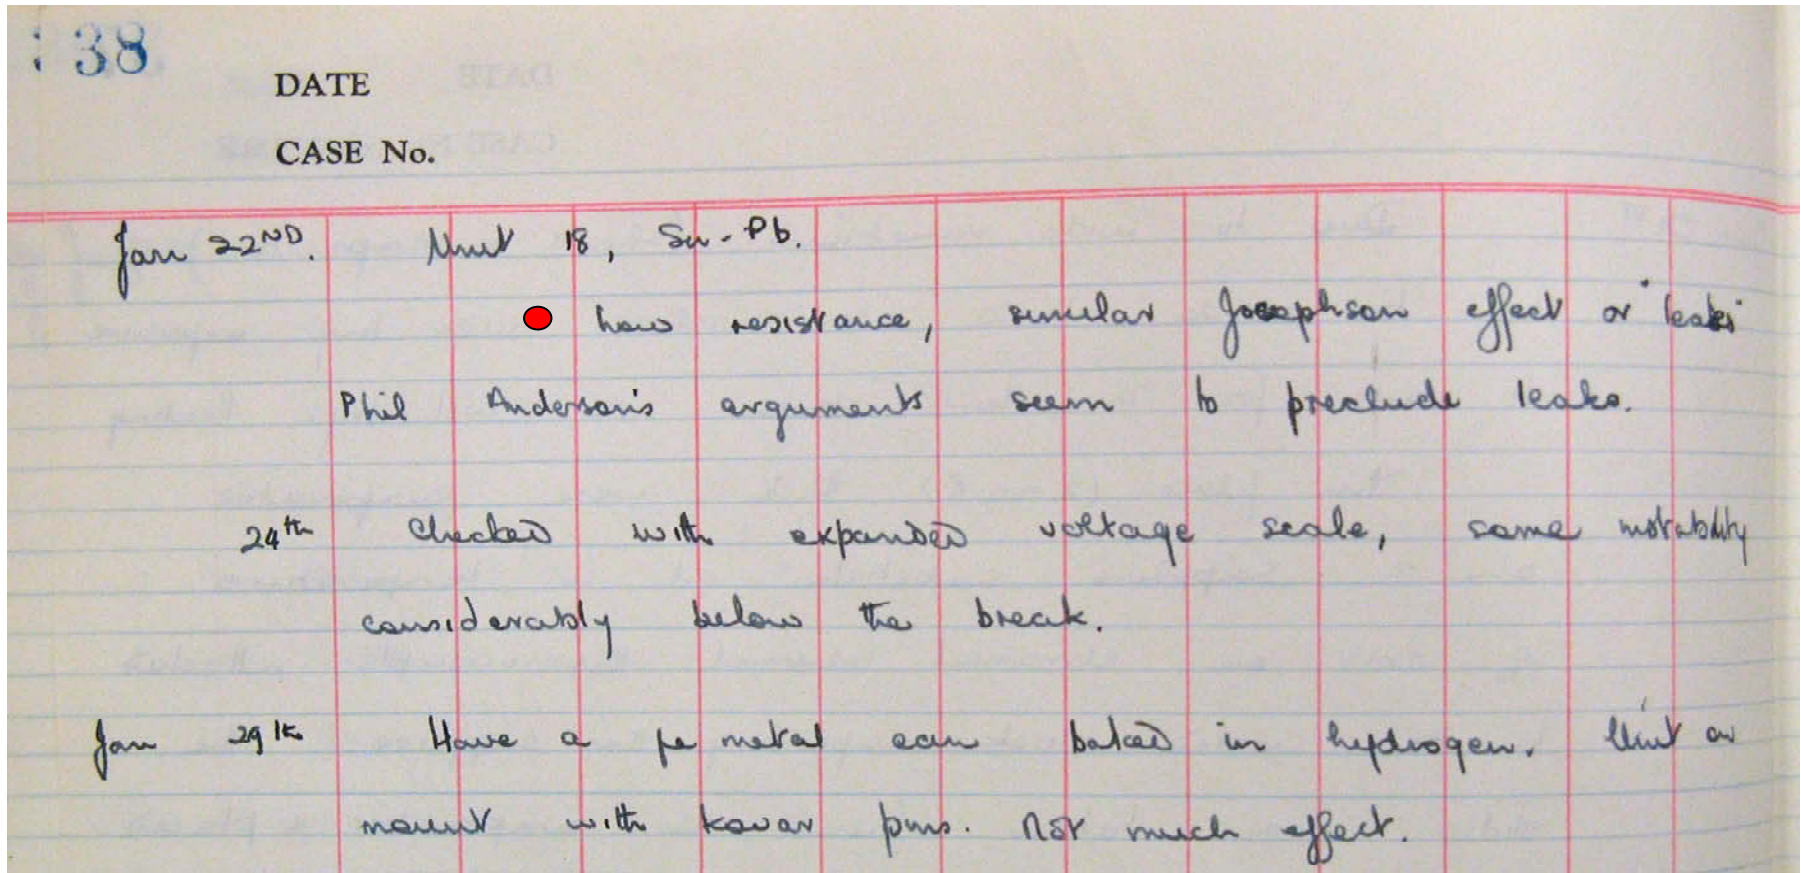 38
DATE
CASE No.
Jan 22ND. Unit 18, Sn-Pb.
how resistance, similar Josephson effect or "leaks"
Phil Anderson's arguments seem to preclude leaks.
24th Checked with expanded voltage scale, same instability
considerably below the break.
Jan 29th Have a metal can baked in hydrogen. Unit on
mount with kovar pins. Not much effect.